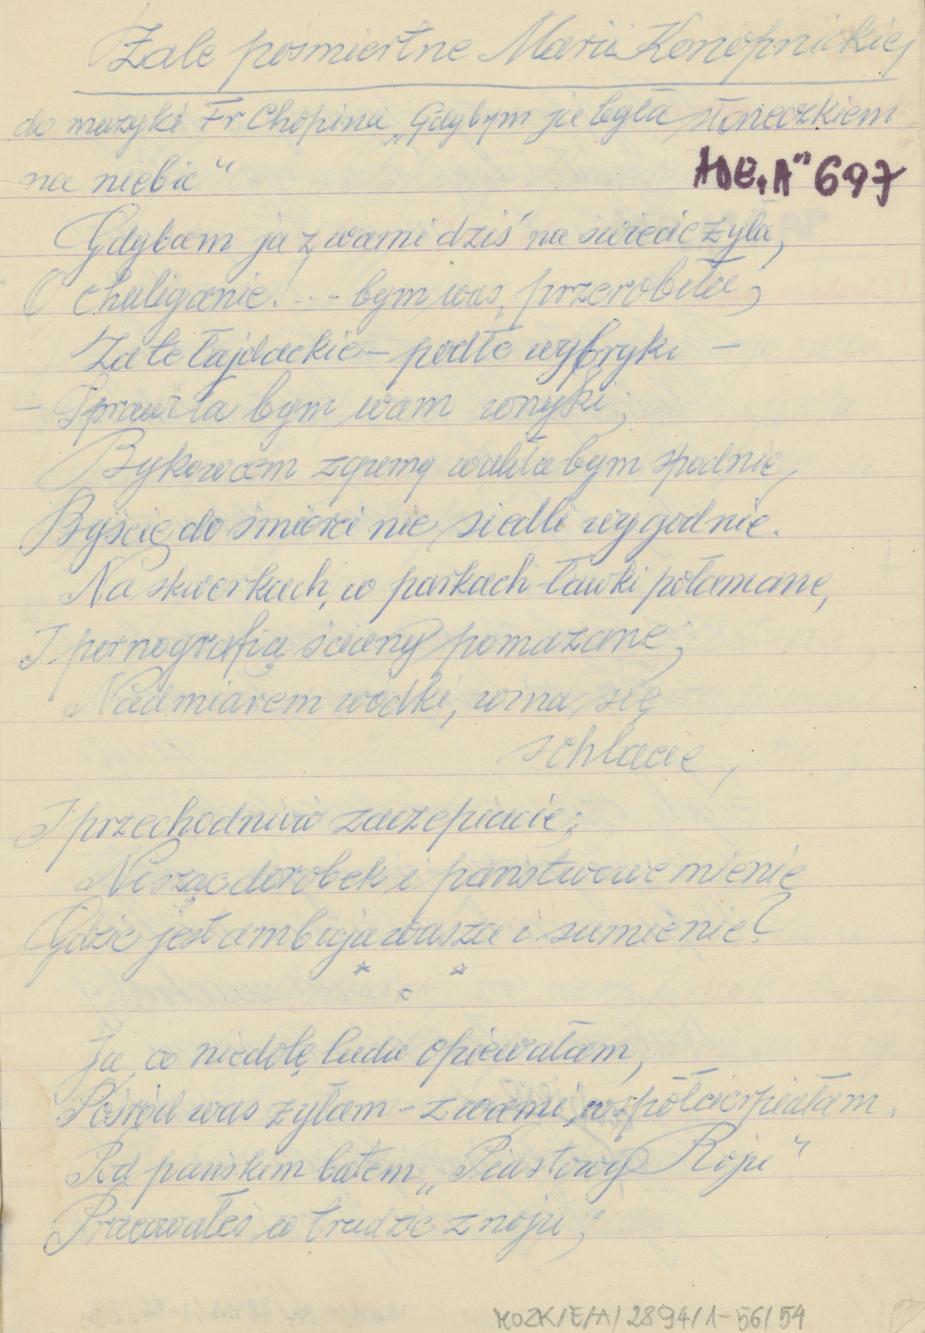 Żale pośmiertne Marii Konopnickiej
do muzyki Fr Chopina „Gdybym ja była słoneczkiem
na niebie"
ADE„A" 697
Gdybam ja z wami dziś na świecie żyła,
O chuliganie!... bym was, przerobiła;
Za te łajdackie – podłe wybryki –
– Sprawiła bym wam wnyki;
Bykowcem zgrzemą waliła bym spodnie,
Byście do śmierci nie siedli wygodnie.
Na skwerkach, w parkach ławki połamane,
I pornografią ściany pomazane;
Nadmiarem wódki, wina się
schlacie,
I przechodniów zaczepiacie;
Niszząc dorobek i państwowe mienie
Gdzie jest ambicja wasza i sumienie?
* *
*
Ja, co niedolę ludu opiewałam,
Pośród was żyłam – z wami współcierpiałam.
Pod pańskim batem „Piastowy Roju"
Pracowałeś w trudzie znoju;
MOZK/E/A/2894/1-56/54